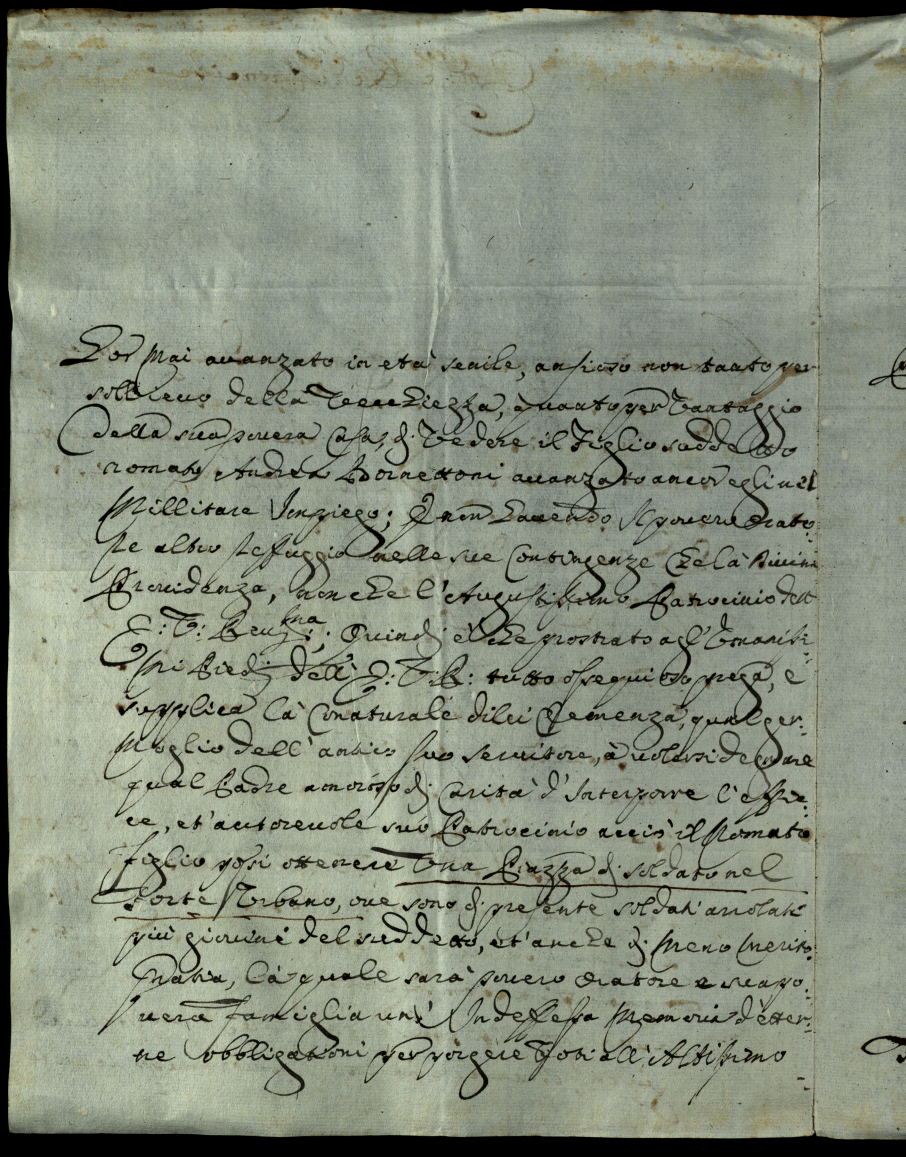 Hor mai auanzato in età senile, ansioso non tanto per
sollieuo della Vecchiezza, quanto per Vantaggio
della sua pouera Casa, di Vedere il Figlio suddetto
nomato Andrea Bornettoni auanzato ancor egli nel
Millitare Impiego; e non hauendo il pouero Orato:
re altro reffuggio nelle sue Contingenze che la Diuina
Prouidenza, non che l'Augustissimo Patrocinio dell'
E: V: Reu:ma; Quindi è che prostrato agl'Emanissi:
mi Piedi dell'E: V: R: tutto ossequioso prega, e
supplica la Conaturale di lei Clemenza, qual ger:
moglio dell'antico suo seruitore, à volersi degnare
qual Padre amoroso di Carità d'Interporre l'effica:
ce, et autoreuole suo Patrocinio acciò il Nomato
figlio possi ottenere Una Piazza di soldato nel
Forte Urbano, oue sono di presente soldati arrolati
più giouini del suddetto, et anche di meno merito:
Gratia, la quale sarà pouero Oratore e sua po:
uera famiglia un' Indeffessa Memoria d'etter:
ne obbligationi per porgere Voti all'Altissimo